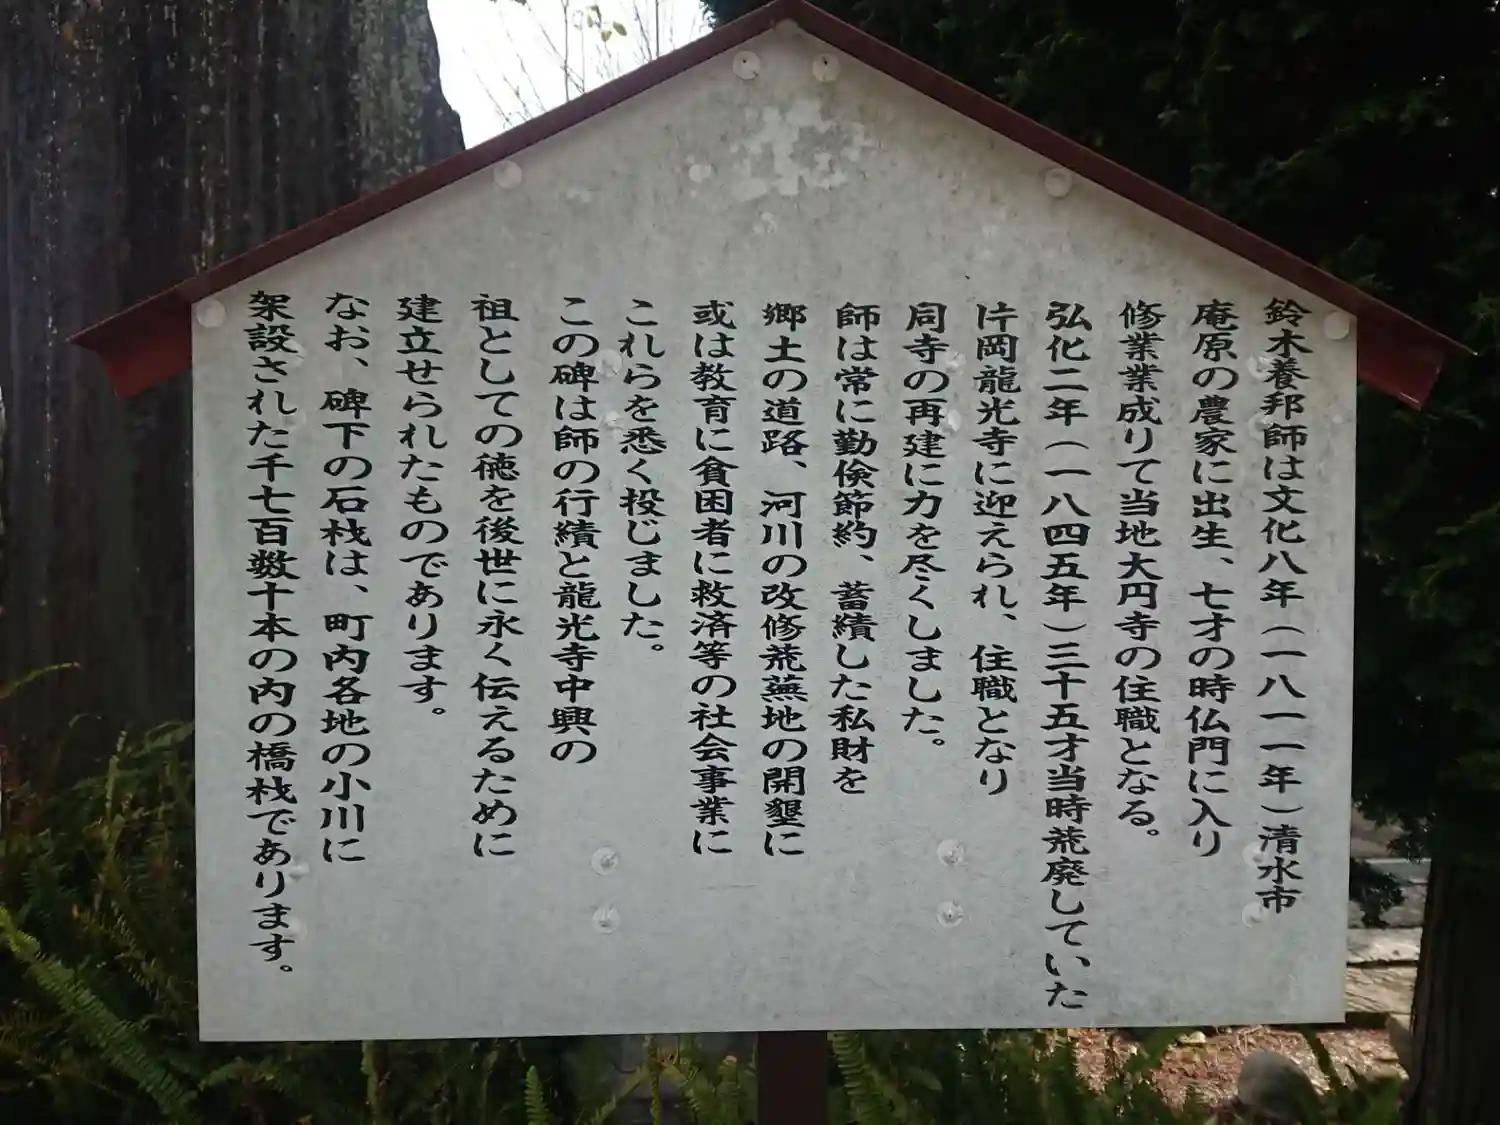 鈴木養邦師は文化八年（一八一一年）清水市
庵原の農家に出生、七才の時仏門に入り
修業業成りて当地大円寺の住職となる。
弘化二年（一八四五年）三十五才当時荒廃していた
片岡龍光寺に迎えられ、住職となり
同寺の再建に力を尽くしました。
師は常に勤倹節約、蓄績した私財を
郷土の道路、河川の改修荒蕪地の開墾に
或は教育に貧困者に救済等の社会事業に
これらを悉く投じました。
この碑は師の行績と龍光寺中興の
祖としての徳を後世に永く伝えるために
建立せられたものであります。
なお、碑下の石栈は、町内各地の小川に
架設された千七百数十本の内の橋栈であります。